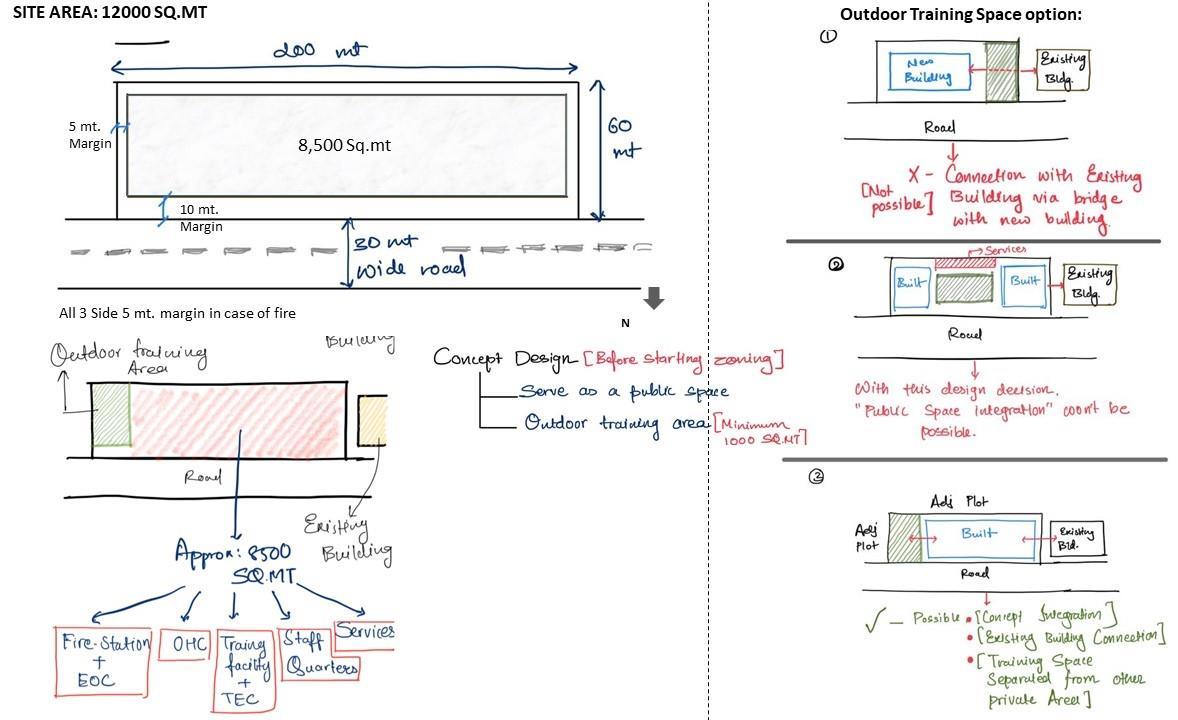 SITE AREA: 12000 SQ.MT
200 mt
5 mt.
Margin
8,500 Sq.mt
60
mt
10 mt.
Margin
30 mt
wide road
All 3 Side 5 mt. margin in case of fire
N
Outdoor training
Area
Building
Road
Existing
Building
Approx: 8500
SQ.MT
Fire-Station
+
EOC
OHC
Traing
facility
+
TEC
Staff
Quarters
Services
Concept Design [Before starting zoning]
Serve as a public space
Outdoor training area [Minimum
1000 SQ.MT]
Outdoor Training Space option:
1
New
Building
Existing
Bldg.
Road
X - Connection with Existing
[Not
possible]
Building via bridge
with new building.
2
Services
Built
Built
Existing
Bldg.
Road
With this design decision,
"Public Space Integration" won't be
possible.
3
Adj Plot
Adj
Plot
Built
Existing
Bld.
Road
✓ - Possible • [Concept Integration]
• [Existing Building Connection]
• [Training Space
Separated from other
private Area]